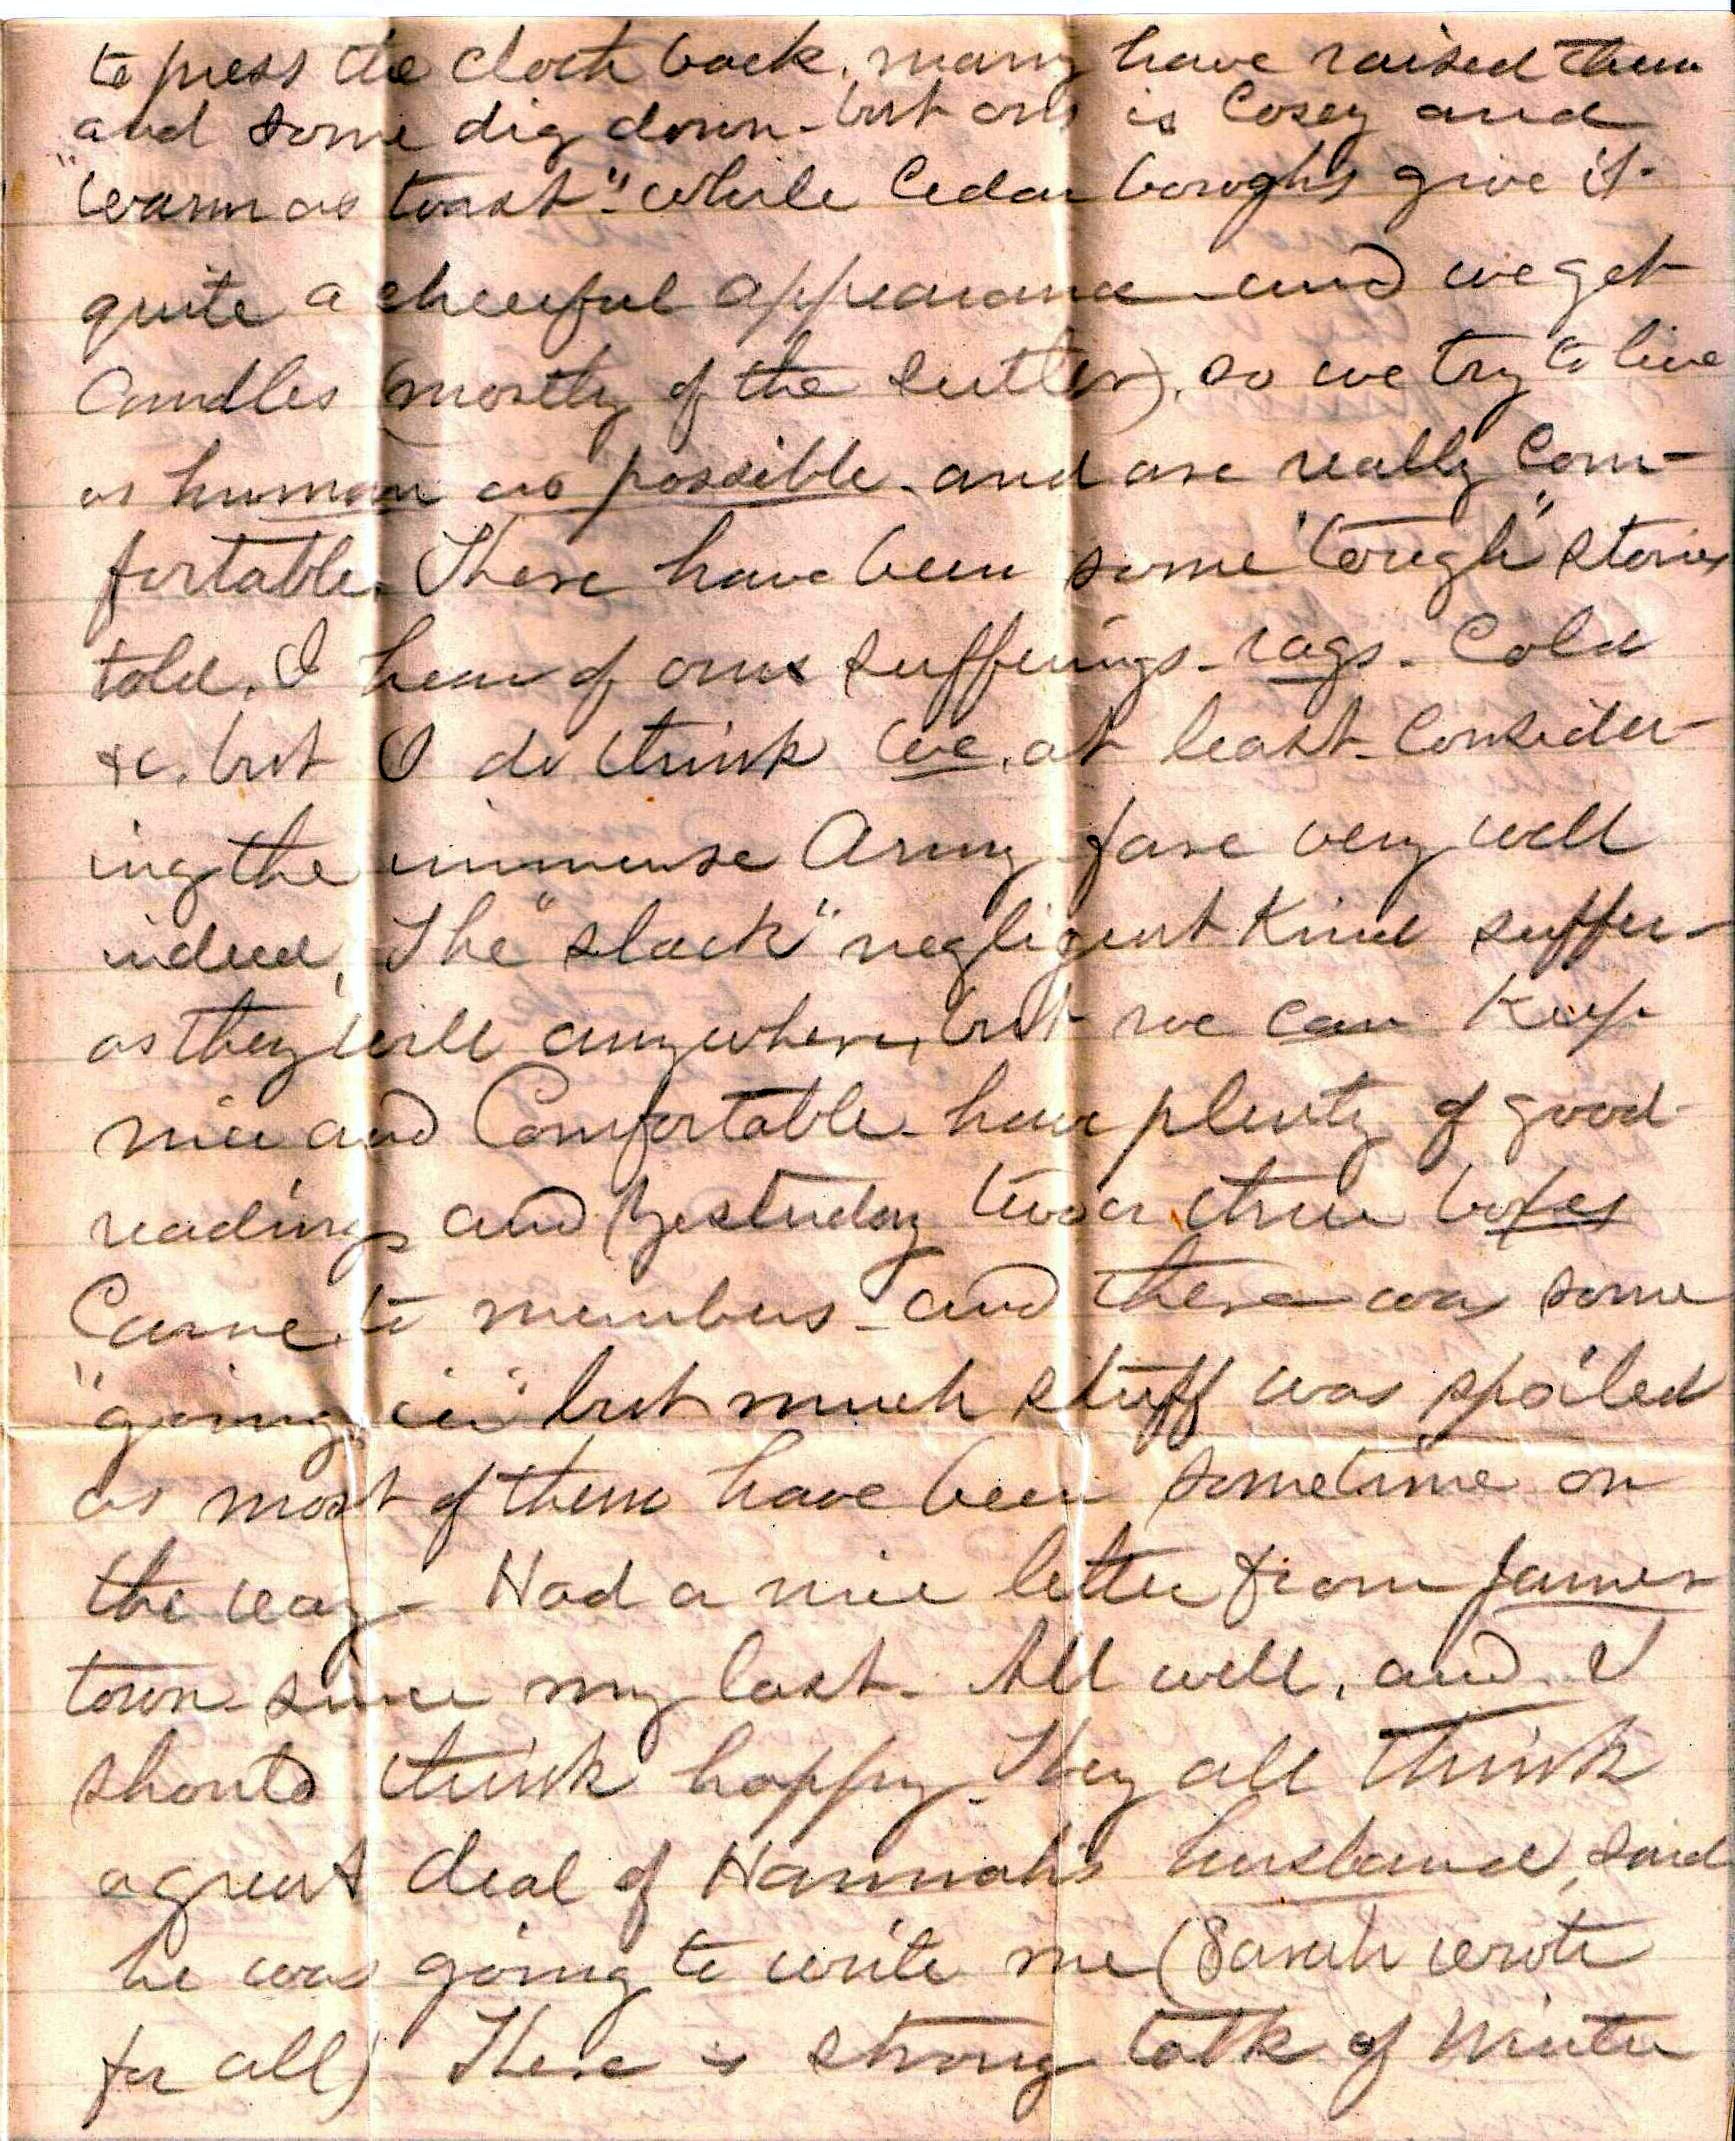 to press the cloth back. many have raised them
and some dig down - but ours is Cosey and
"warm as toast" - while Cedar boroghs give it
quite a cheerful appearance and we get
Candles (mostly of the Sutler). so we try to live
as human as possible - and are really Com-
fortable. There have been some "tough" stories
told. I hear of our sufferings - rags - Cold
&c. but I do think we, at least - consider-
ing the immense Army fare very well
indeed. The "slack" negligent Kind suffer -
as they will anywhere, but we can Keep
nice and Comfortable - have plenty of good
reading and yesterday two or three boxes
Came to members - and there was some
"going in" but much stuff was spoiled
as most of them have been sometime on
the way - Had a nice letter from James-
town since my last. All well, and I
should think happy. They all think
a great deal of Hannah's husband, said
he was going to write me (Sarah wrote
for all) There is strong talk of Winter